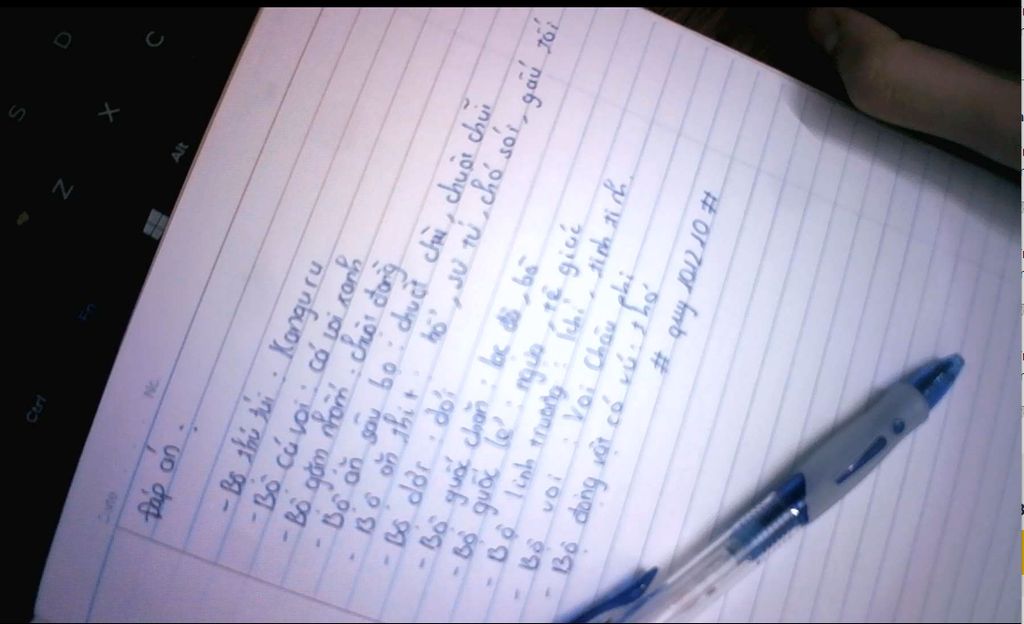 Đáp án.
- Bộ thú túi: Kanguru
- Bộ cá voi: cá voi xanh
- Bộ gặm nhấm: chuột đồng
- Bộ ăn sâu bọ: chuột chù, chuột chũi
- Bộ ăn thịt: hổ, sư tử, chó sói, gấu
- Bộ dơi: dơi
- Bộ guốc chẵn: lạc đà, bò
- Bộ guốc lẻ: ngựa, tê giác
- Bộ linh trưởng: khỉ, tinh tinh
- Bộ voi: Voi Châu phi
- Bộ động vật có vú: thỏ
# quy 101210 #
D
C
S
X
Alt
Z
Fn
Ctrl
No
Date